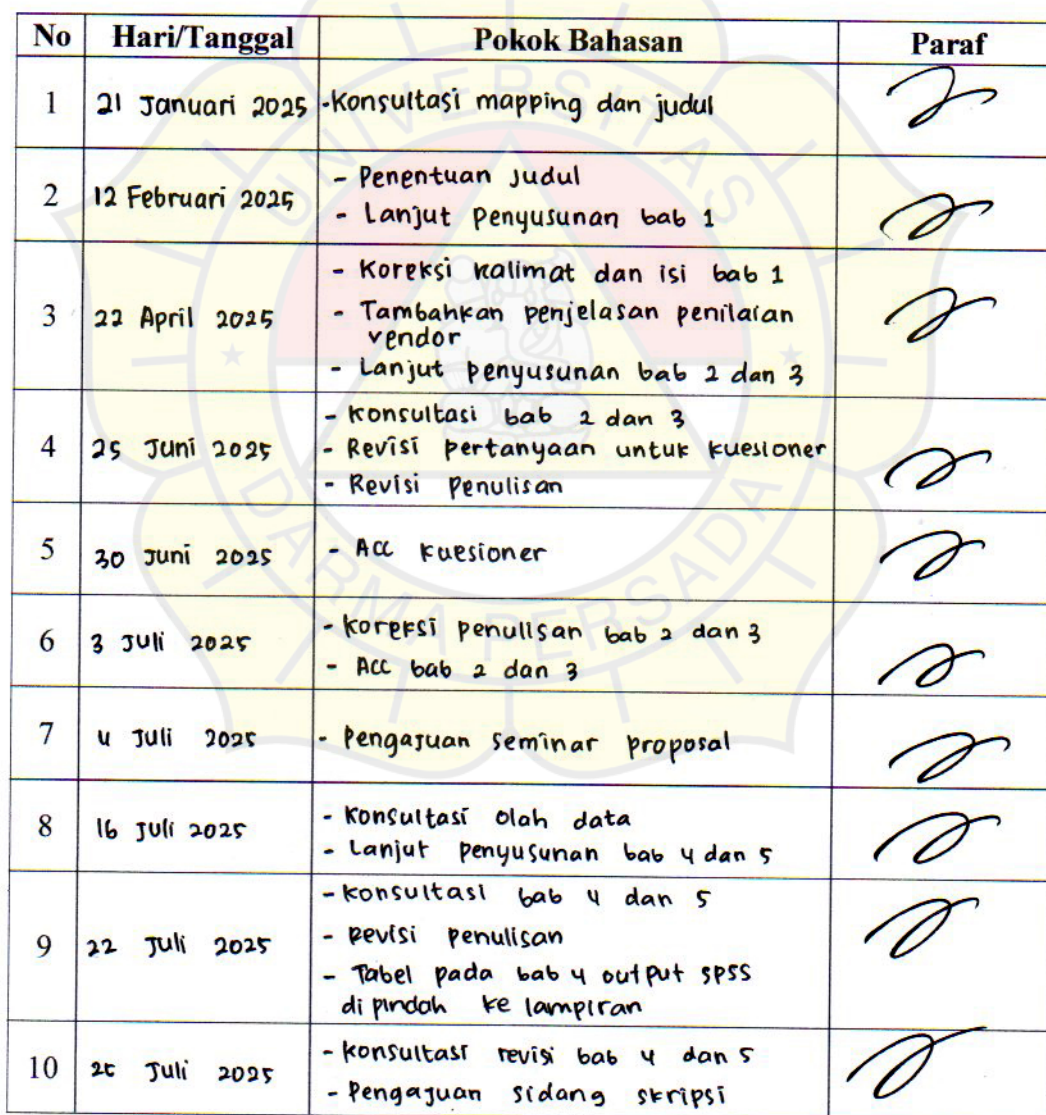 No Hari/Tanggal Pokok Bahasan Paraf
1 21 Januari 2025 -Konsultasi mapping dan judul
2 12 Februari 2025 - Penentuan Judul
- Lanjut Penyusunan bab 1
3 22 April 2025 - Koreksi kalimat dan isi bab 1
- Tambahkan penjelasan penilaian
vendor
- Lanjut penyusunan bab 2 dan 3
4 25 Juni 2025 - Konsultasi bab 2 dan 3
- Revisi pertanyaan untuk kuesioner
- Revisi Penulisan
5 30 Juni 2025 - Acc kuesioner
6 3 Juli 2025 - Koreksi penulisan bab 2 dan 3
- Acc bab 2 dan 3
7 4 Juli 2025 - Pengajuan seminar proposal
8 16 Juli 2025 - Konsultasi olah data
- Lanjut penyusunan bab 4 dan 5
9 22 Juli 2025 - Konsultasi bab 4 dan 5
- Revisi penulisan
- Tabel pada bab 4 output SPSS
di pindah ke lampiran
10 Juli 2025 - Konsultasi revisi bab 4 dan 5
- Pengajuan sidang skripsi
UNIVERSITAS
DARMA PERSADA